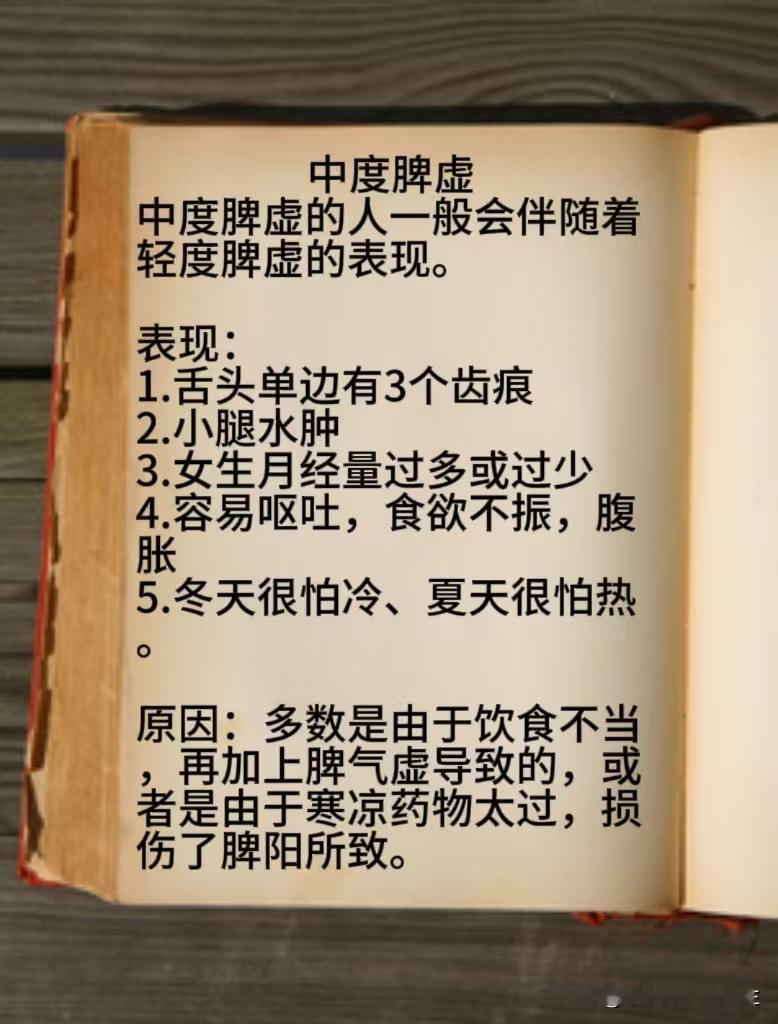 中度脾虚
中度脾虚的人一般会伴随着
轻度脾虚的表现。
表现：
1.舌头单边有3个齿痕
2.小腿水肿
3.女生月经量过多或过少
4.容易呕吐，食欲不振，腹
胀
5.冬天很怕冷、夏天很怕热
。
原因：多数是由于饮食不当
，再加上脾气虚导致的，或
者是由于寒凉药物太过，损
伤了脾阳所致。